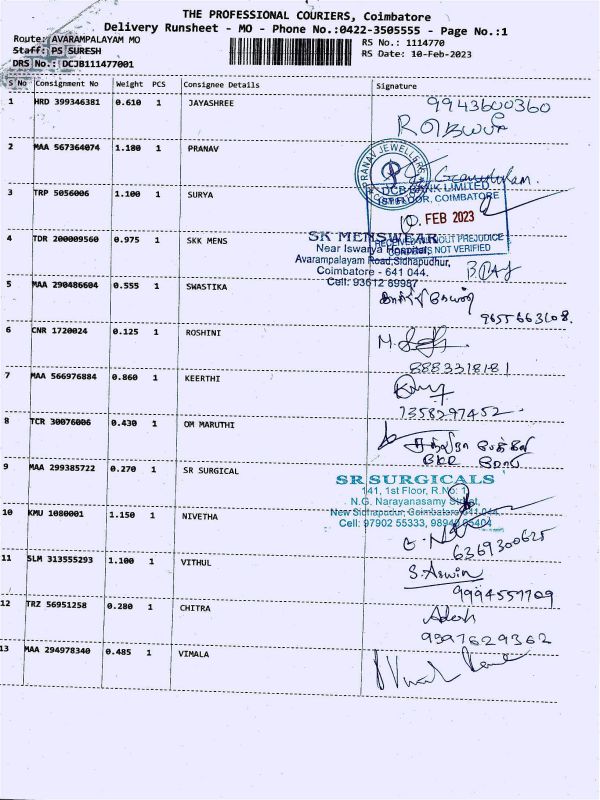 THE PROFESSIONAL COURIERS, Coimbatore
Delivery Runsheet - MO - Phone No.:0422-3505555 - Page No.:1
Route: AVARAMPALAYAM MO
Staff: PS SURESH
DRS No.: DCJB111477001
RS No.: 1114770
RS Date: 10-Feb-2023
S No Consignment No Weight PCS Consignee Details Signature
1 HRD 399346381 0.610 1 JAYASHREE 9943600360
2 MAA 567364074 1.180 1 PRANAV
PRANAV JEWELLERS
3 TRP 5056006 1.100 1 SURYA
DCB BANK LIMITED
1ST FLOOR, COIMBATORE
10 FEB 2023
RECEIVED WITHOUT PREJUDICE
CONTENTS NOT VERIFIED
4 TDR 200009560 0.975 1 SKK MENS
SK MENSWEAR
Near Iswarya Hospital,
Avarampalayam Road, Sidhapudhur,
Coimbatore - 641 044.
Cell: 93612 89987
5 MAA 290486604 0.555 1 SWASTIKA
9655663108.
6 CNR 1720024 0.125 1 ROSHINI
8883318181
7 MAA 566976884 0.860 1 KEERTHI
7358297452.
8 TCR 30076006 0.430 1 OM MARUTHI
9 MAA 299385722 0.270 1 SR SURGICAL
SR SURGICALS
141, 1st Floor, R.No: 1
N.G. Narayanasamy Street,
New Sidhapudur, Coimbatore-641 044.
Cell: 97902 55333, 98940 05404
10 KMU 1080001 1.150 1 NIVETHA
6369300625
11 SLM 313555293 1.100 1 VITHUL
S. Aswin
9994557709
12 TRZ 56951258 0.280 1 CHITRA
9597629362
13 MAA 294978340 0.485 1 VIMALA